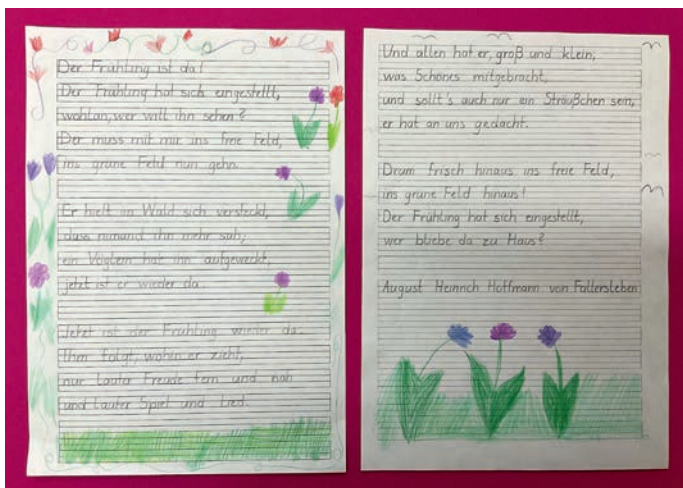 Der Frühling ist da!
Der Frühling hat sich eingestellt,
wohlan, wer will ihn sehen?
Der muss mit mir ins freie Feld,
ins grüne Feld nun gehn.
Er hielt im Wald sich versteckt,
dass niemand ihn mehr sah;
ein Vöglein hat ihn aufgeweckt,
jetzt ist er wieder da.
Jetzt ist der Frühling wieder da.
Ihm folgt, wohin er zieht,
nur lauter Freude fern und nah
und lauter Spiel und Lied.
Und allen hat er, groß und klein,
was Schönes mitgebracht,
und sollt's auch nur ein Sträußchen sein,
er hat an uns gedacht.
Drum frisch hinaus ins freie Feld,
ins grüne Feld hinaus!
Der Frühling hat sich eingestellt,
wer bliebe da zu Haus?
August Heinrich Hoffmann von Fallersleben